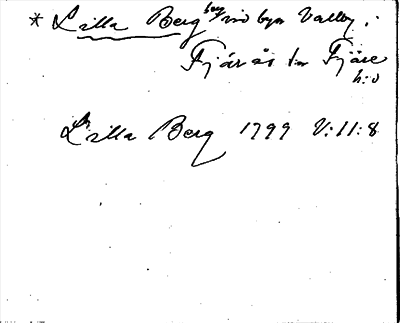 * Lilla Berg vid byn Valby i
Fjärås sn Fjäre
h:d
Lilla Berg 1799 V:11:8